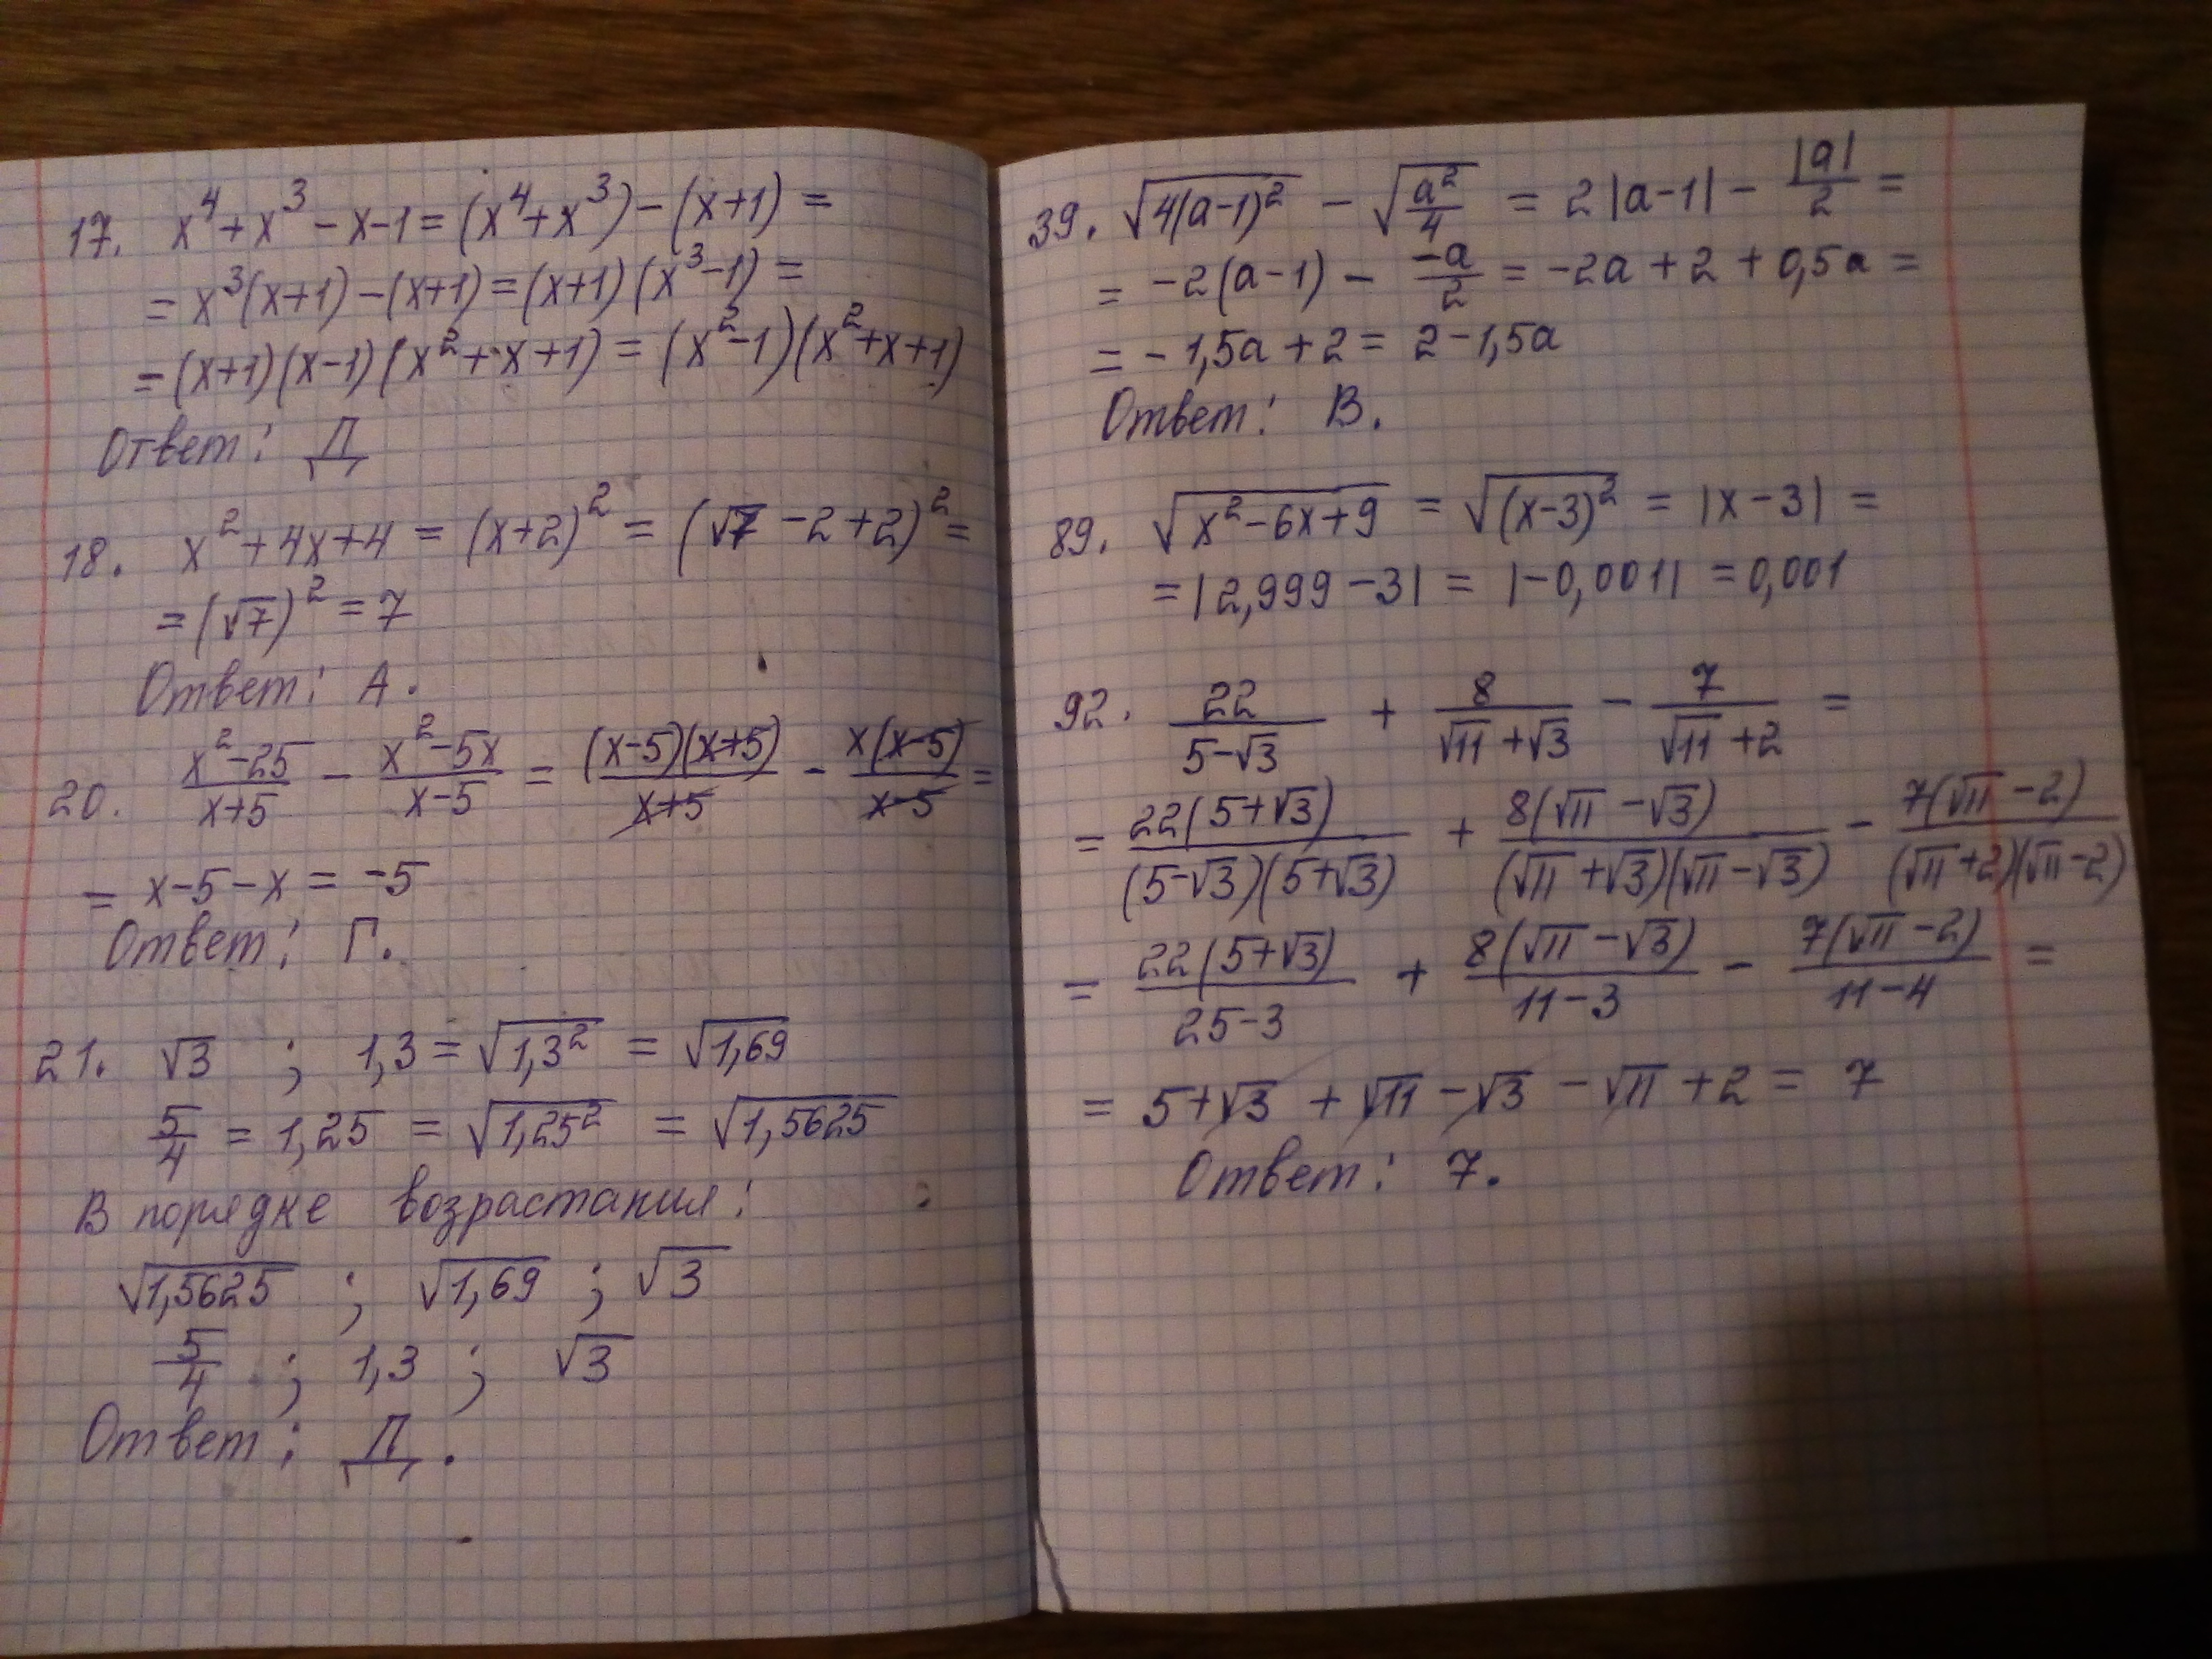 17. x⁴+x³-x-1=(x⁴+x³)-(x+1)=
=x³(x+1)-(x+1)=(x+1)(x³-1)=
=(x+1)(x-1)(x²+x+1)=(x²-1)(x²+x+1)
Ответ: Д
18. x²+4x+4=(x+2)²=(√7-2+2)²=
=(√7)²=7
Ответ: А.
20. (x²-25)/(x+5) - (x²-5x)/(x-5) = ((x-5)(x+5))/(x+5) - (x(x-5))/(x-5) =
= x-5-x = -5
Ответ: Г.
21. √3 ; 1,3=√(1,3²) = √(1,69)
5/4 = 1,25 = √(1,25²) = √(1,5625)
В порядке возрастания:
√(1,5625) ; √(1,69) ; √3
5/4 ; 1,3 ; √3
Ответ: Д.
39. √(4(a-1)²) - √(a²/4) = 2|a-1| - |a|/2 =
= -2(a-1) - (-a)/2 = -2a+2+0,5a =
= -1,5a+2 = 2-1,5a
Ответ: В.
89. √(x²-6x+9) = √((x-3)²) = |x-3| =
=|2,999-3| = |-0,001| =0,001
92. 22/(5-√3) + 8/(√11+√3) - 7/(√11+2) =
= (22(5+√3))/((5-√3)(5+√3)) + (8(√11-√3))/((√11+√3)(√11-√3)) - (7(√11-2))/((√11+2)(√11-2))
= (22(5+√3))/(25-3) + (8(√11-√3))/(11-3) - (7(√11-2))/(11-4) =
= 5+√3+√11-√3-√11+2 = 7
Ответ: 7.